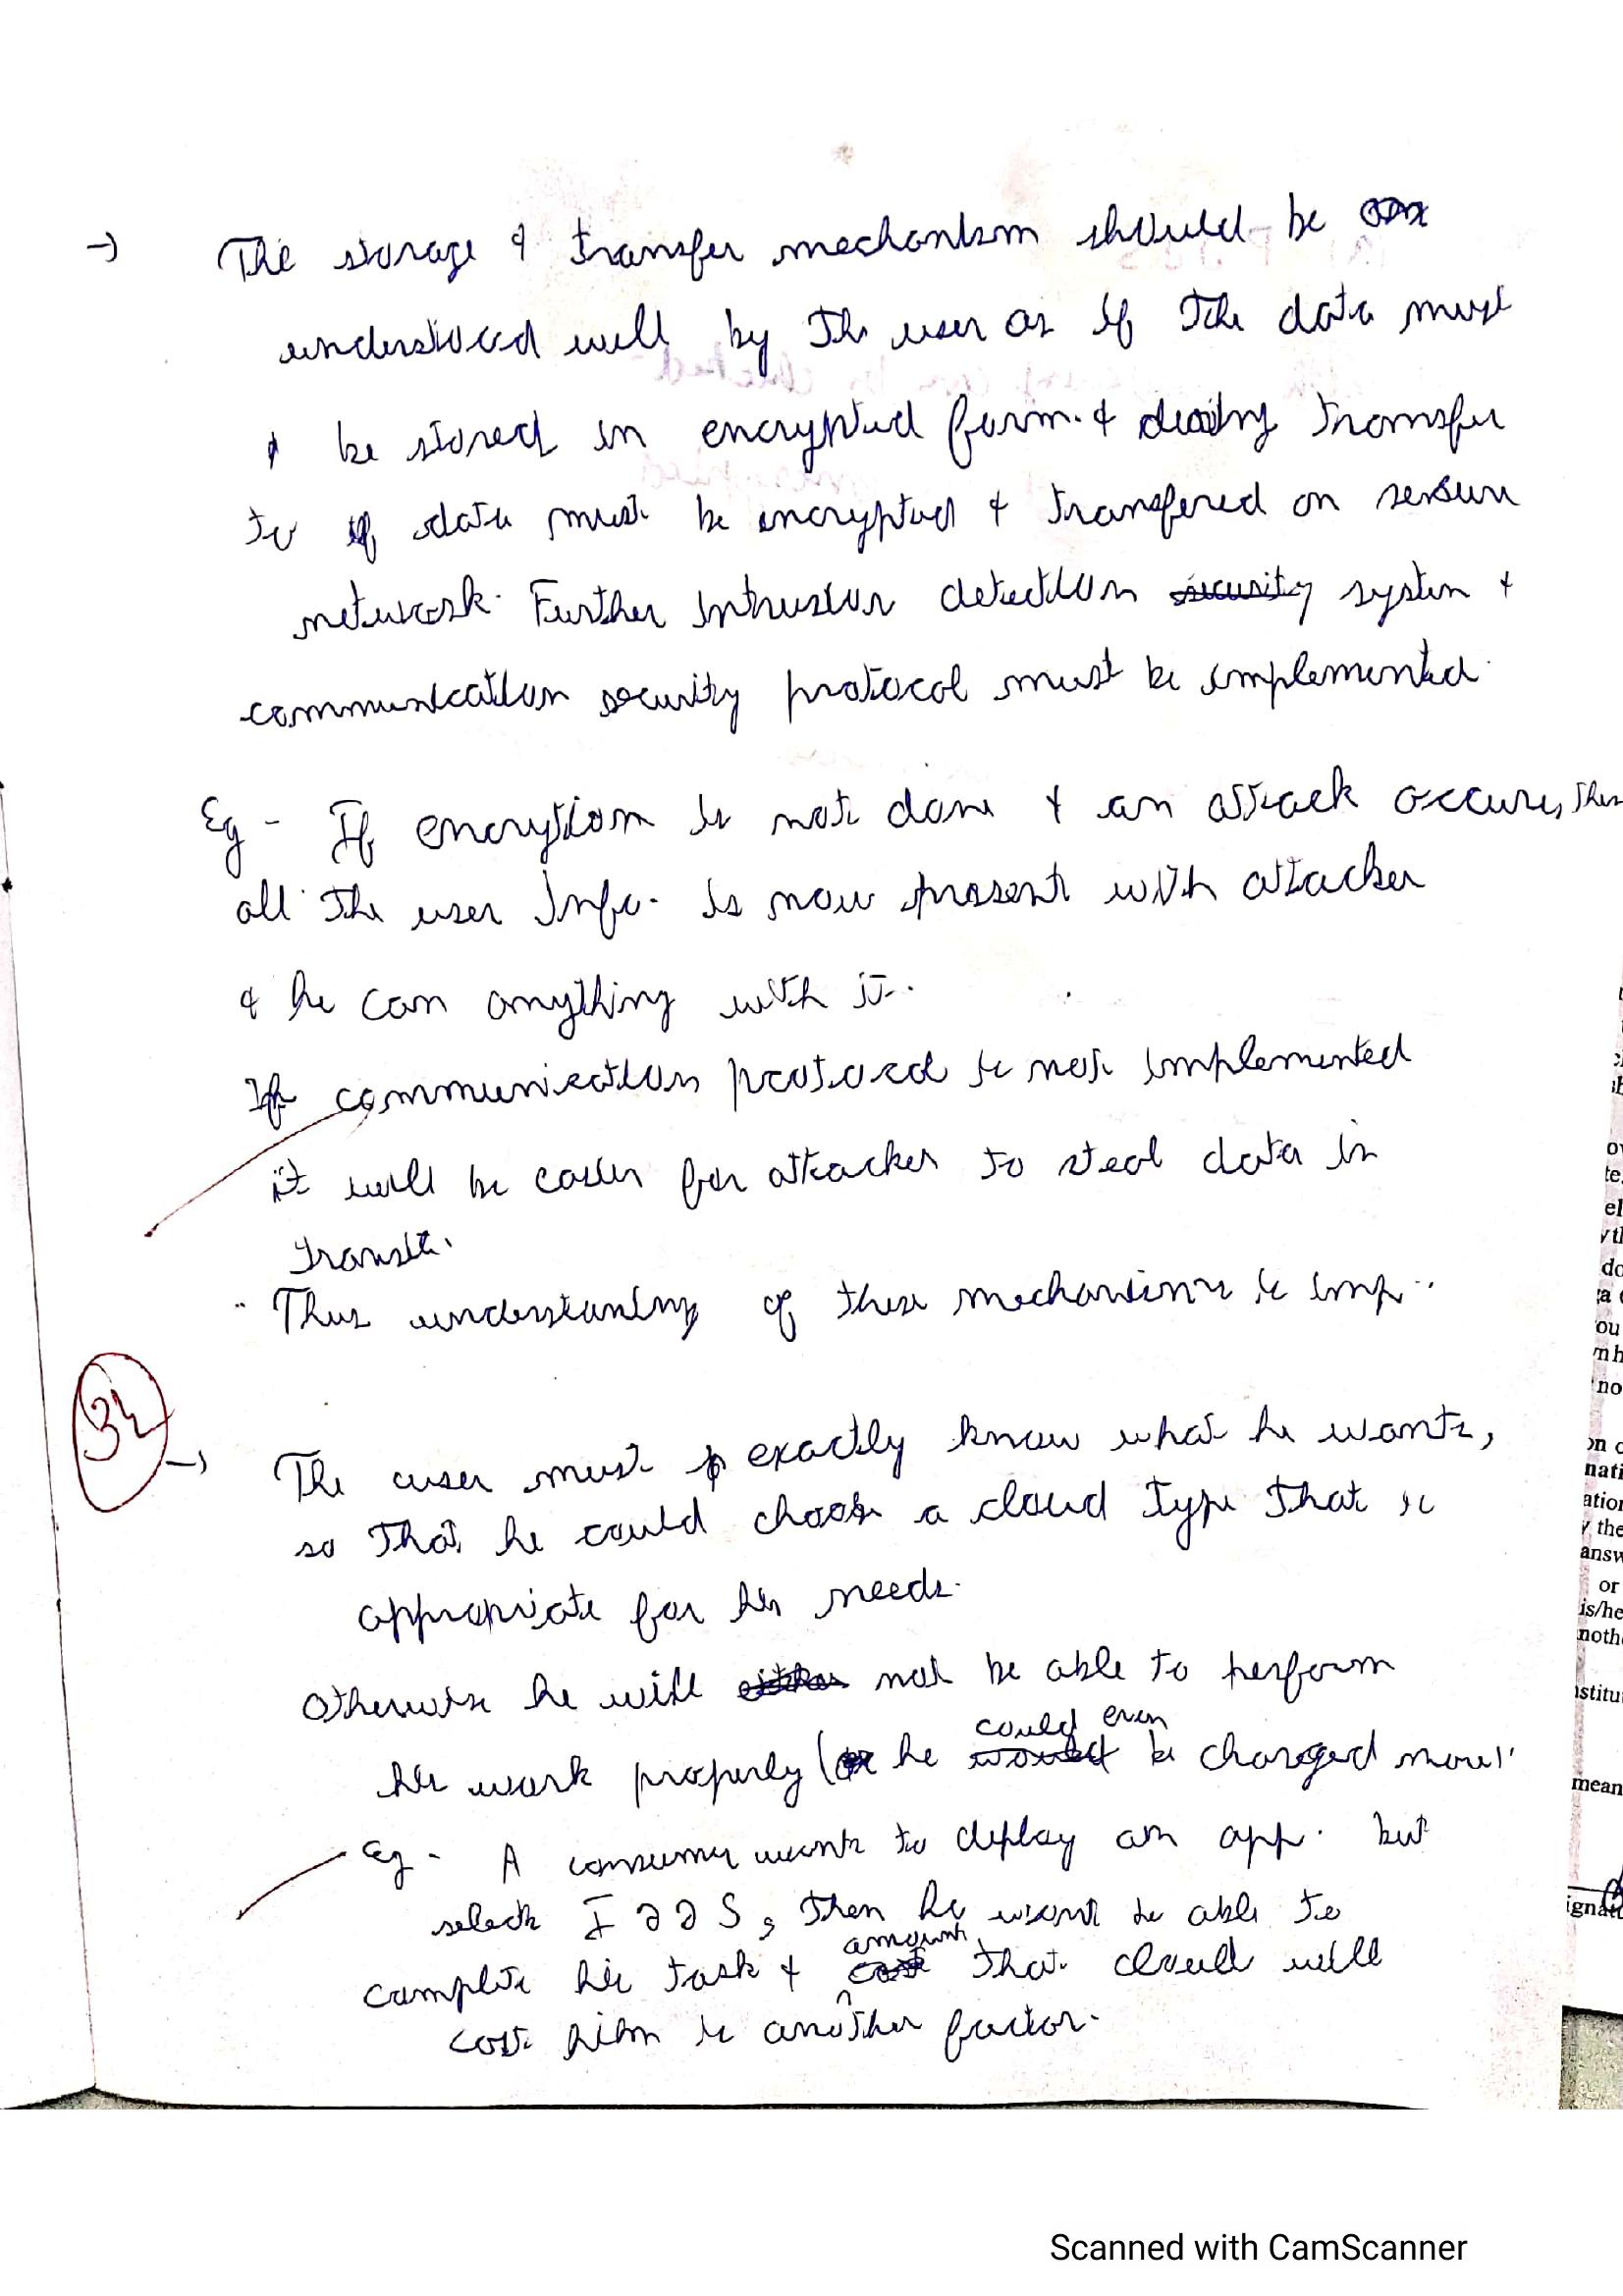 → The storage & transfer mechanism should be
understood well by the user as if the data must
be stored in encrypted form. & during transfer
to if data must be encrypted & transfered on sensure
network. Further intrusion detection security system &
communication security protocol must be implemented.
Eg - If encrytion is not done & an attack occurs, then
all the user info. is now present with attacker
& he can anything with it.
If communication protocol is not implemented
it will be easier for attacker to steal data in
transit.
Thus understaning of these mechanisms is imp.
→ The user must exactly know what he wants,
so that he could choose a cloud type that is
appropriate for his needs.
Otherwise he will either not be able to perform
could even
his work properly (or he would be charged more
Eg - A consumer wants to deploy an app. but
selects IaaS, then he wont be able to
amount
complete his task & cost that cloud will
cost him is another factor.
Scanned with CamScanner